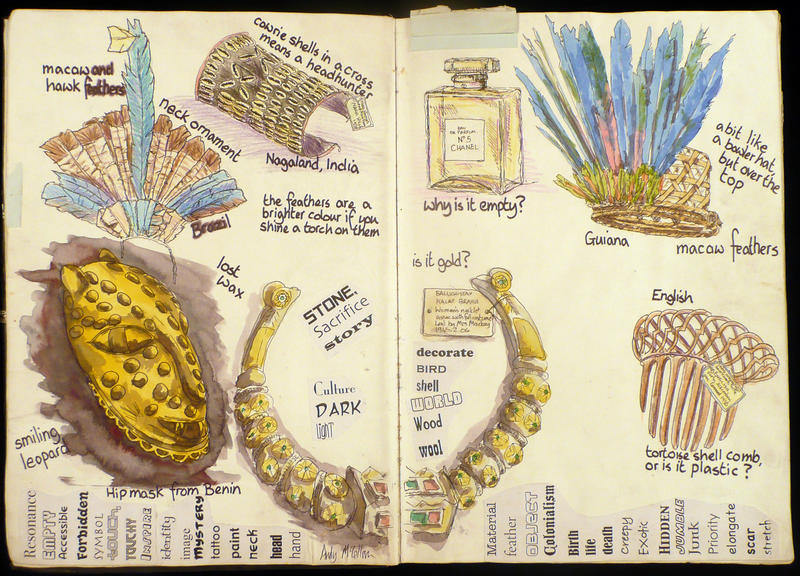 macaw and
hawk feathers
neck ornament
Brazil
cowrie shells in a cross
means a headhunter
Nagaland, India
the feathers are a
brighter colour if you
shine a torch on them
lost
wax
smiling
leopard
Hip mask from Benin
STONE,
Sacrifice
story
Culture
DARK
LIGHT
Resonance
EMPTY
Accessible
Forbidden
SYMBOL
TOUCH,
TOUCHY
INSPIRE
identity
image
MYSTERY
tattoo
paint
neck
head
hand
EAU
DE PARFUM
Nº5
CHANEL
why is it empty?
a bit like
a bowler hat,
but over the
top
Guiana
macaw feathers
is it gold?
Woman's
1945.2.06
decorate
BIRD
shell
WORLD
Wood
wool
English
tortoise shell comb,
or is it plastic?
Material
feather
OBJECT
Colonialism
Birth
life
death
creepy
Exotic
HIDDEN
JUMBLE
Junk
Priority
elongate
scar
stretch